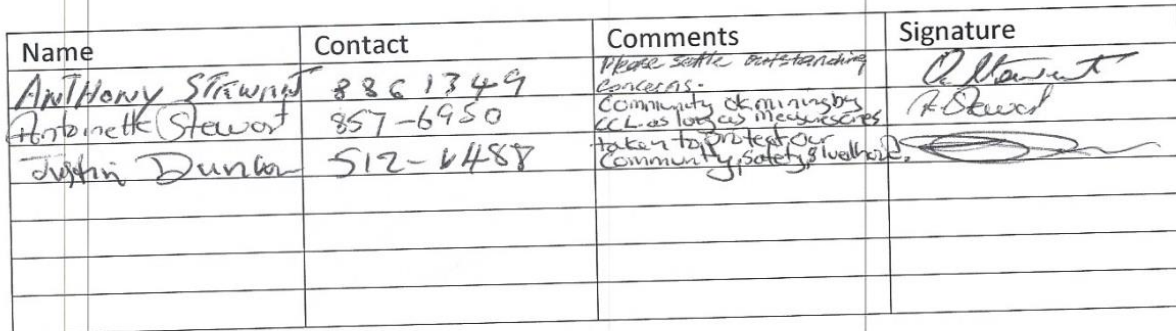 Name Contact Comments Signature
ANTHONY STEWART 886 1349 Please settle outstanding
concerns.
Antoinette Stewart 857-6950 Community ok mining by
CCL as long as measures
Justin Duncan 512-6488 taken to protect our
Community, safety,